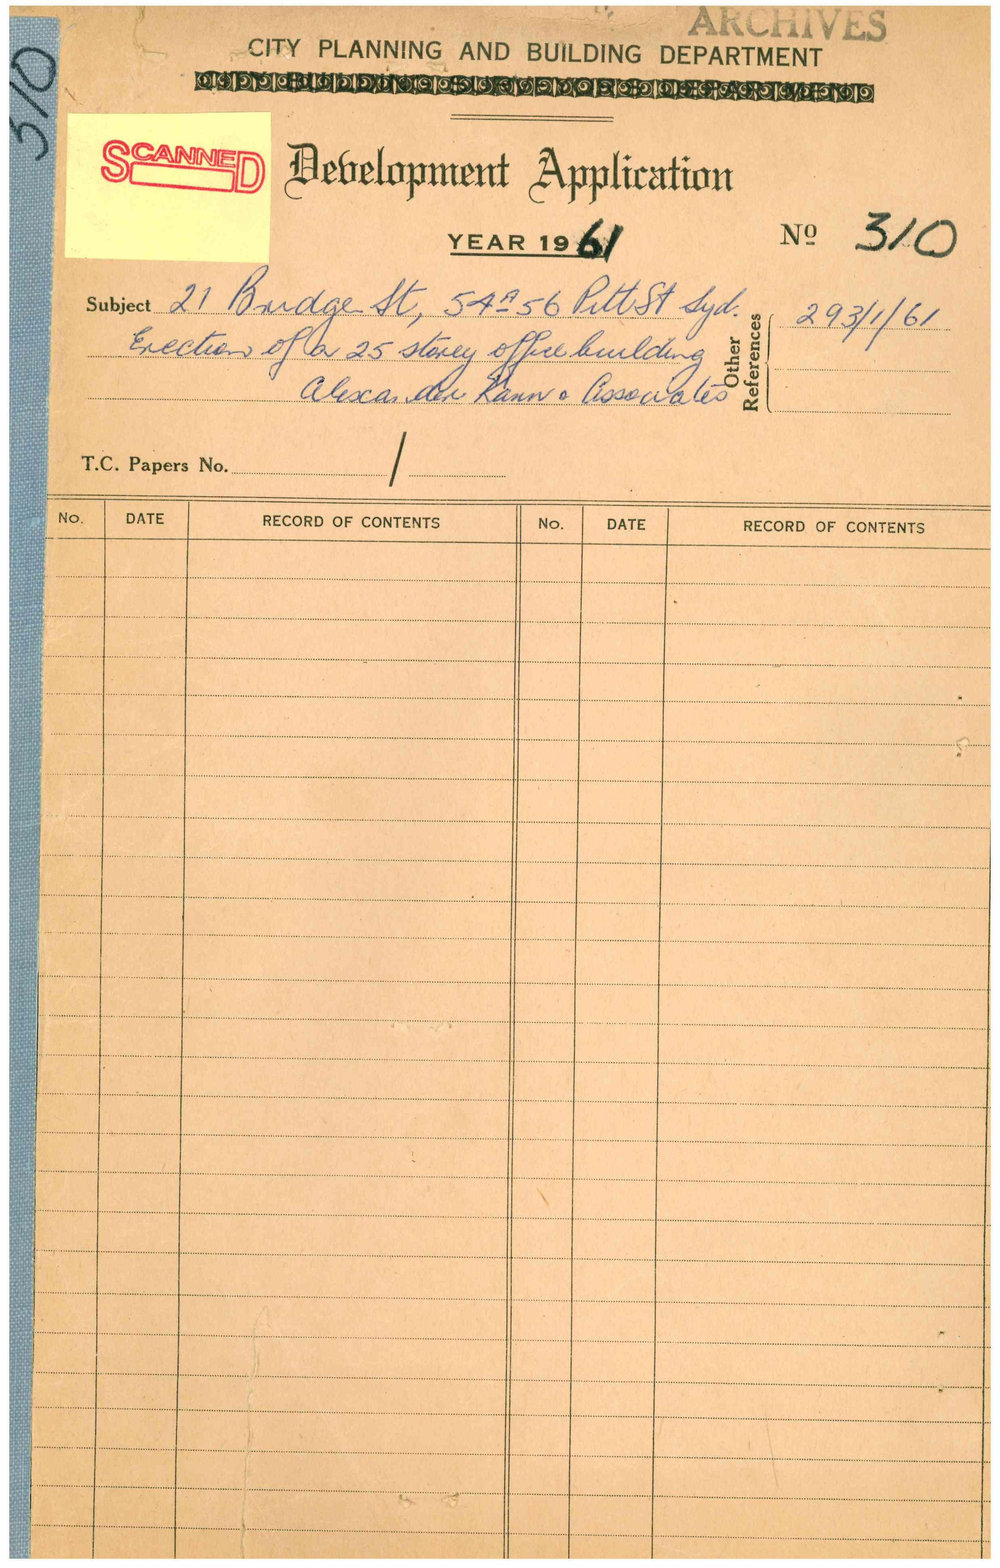 ARCHIVES
310
CITY PLANNING AND BUILDING DEPARTMENT
CITY BUILDING SURVEYOR'S DEPARTMENT
SCANNED
Development Application
YEAR 1961
No 310
Subject 21 Bridge St, 54A-56 Pitt St Syd.
Erection of a 25 storey office building
Alexander Kann & Associates
Other References
293/1/61
T.C. Papers No. /
No. DATE RECORD OF CONTENTS No. DATE RECORD OF CONTENTS